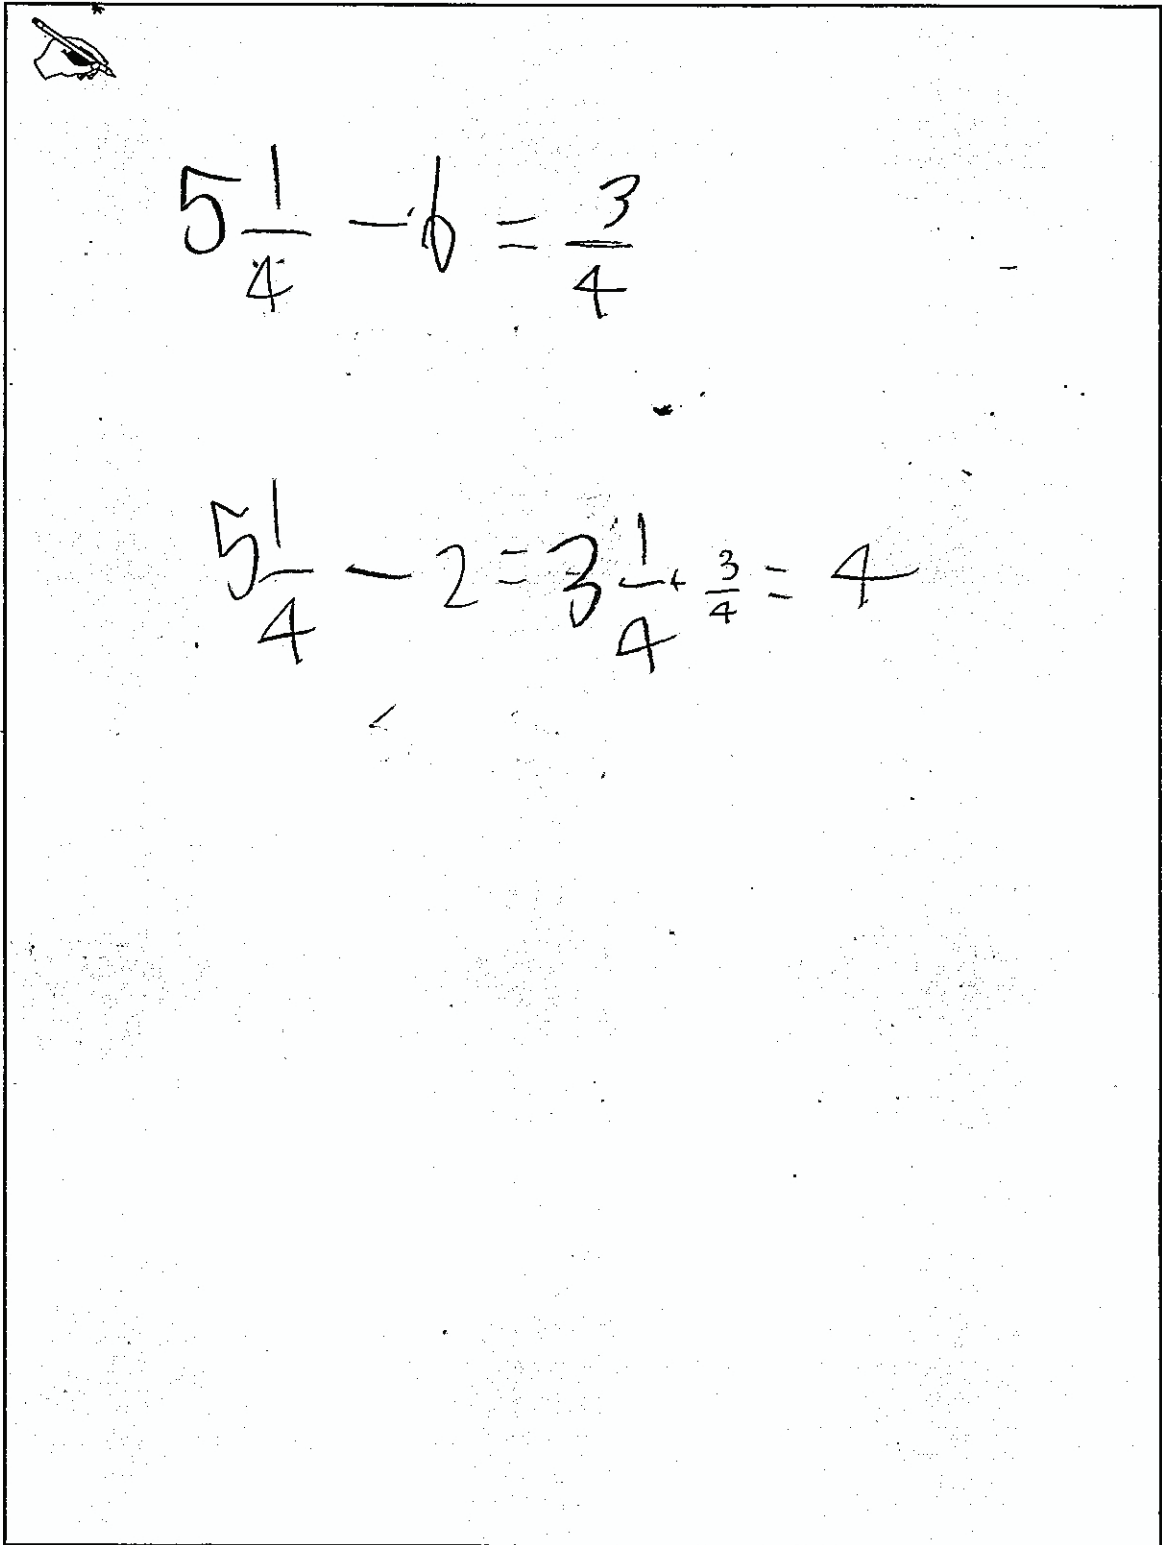 5 1/4 - 6 = 3/4
5 1/4 - 2 = 3 1/4 + 3/4 = 4